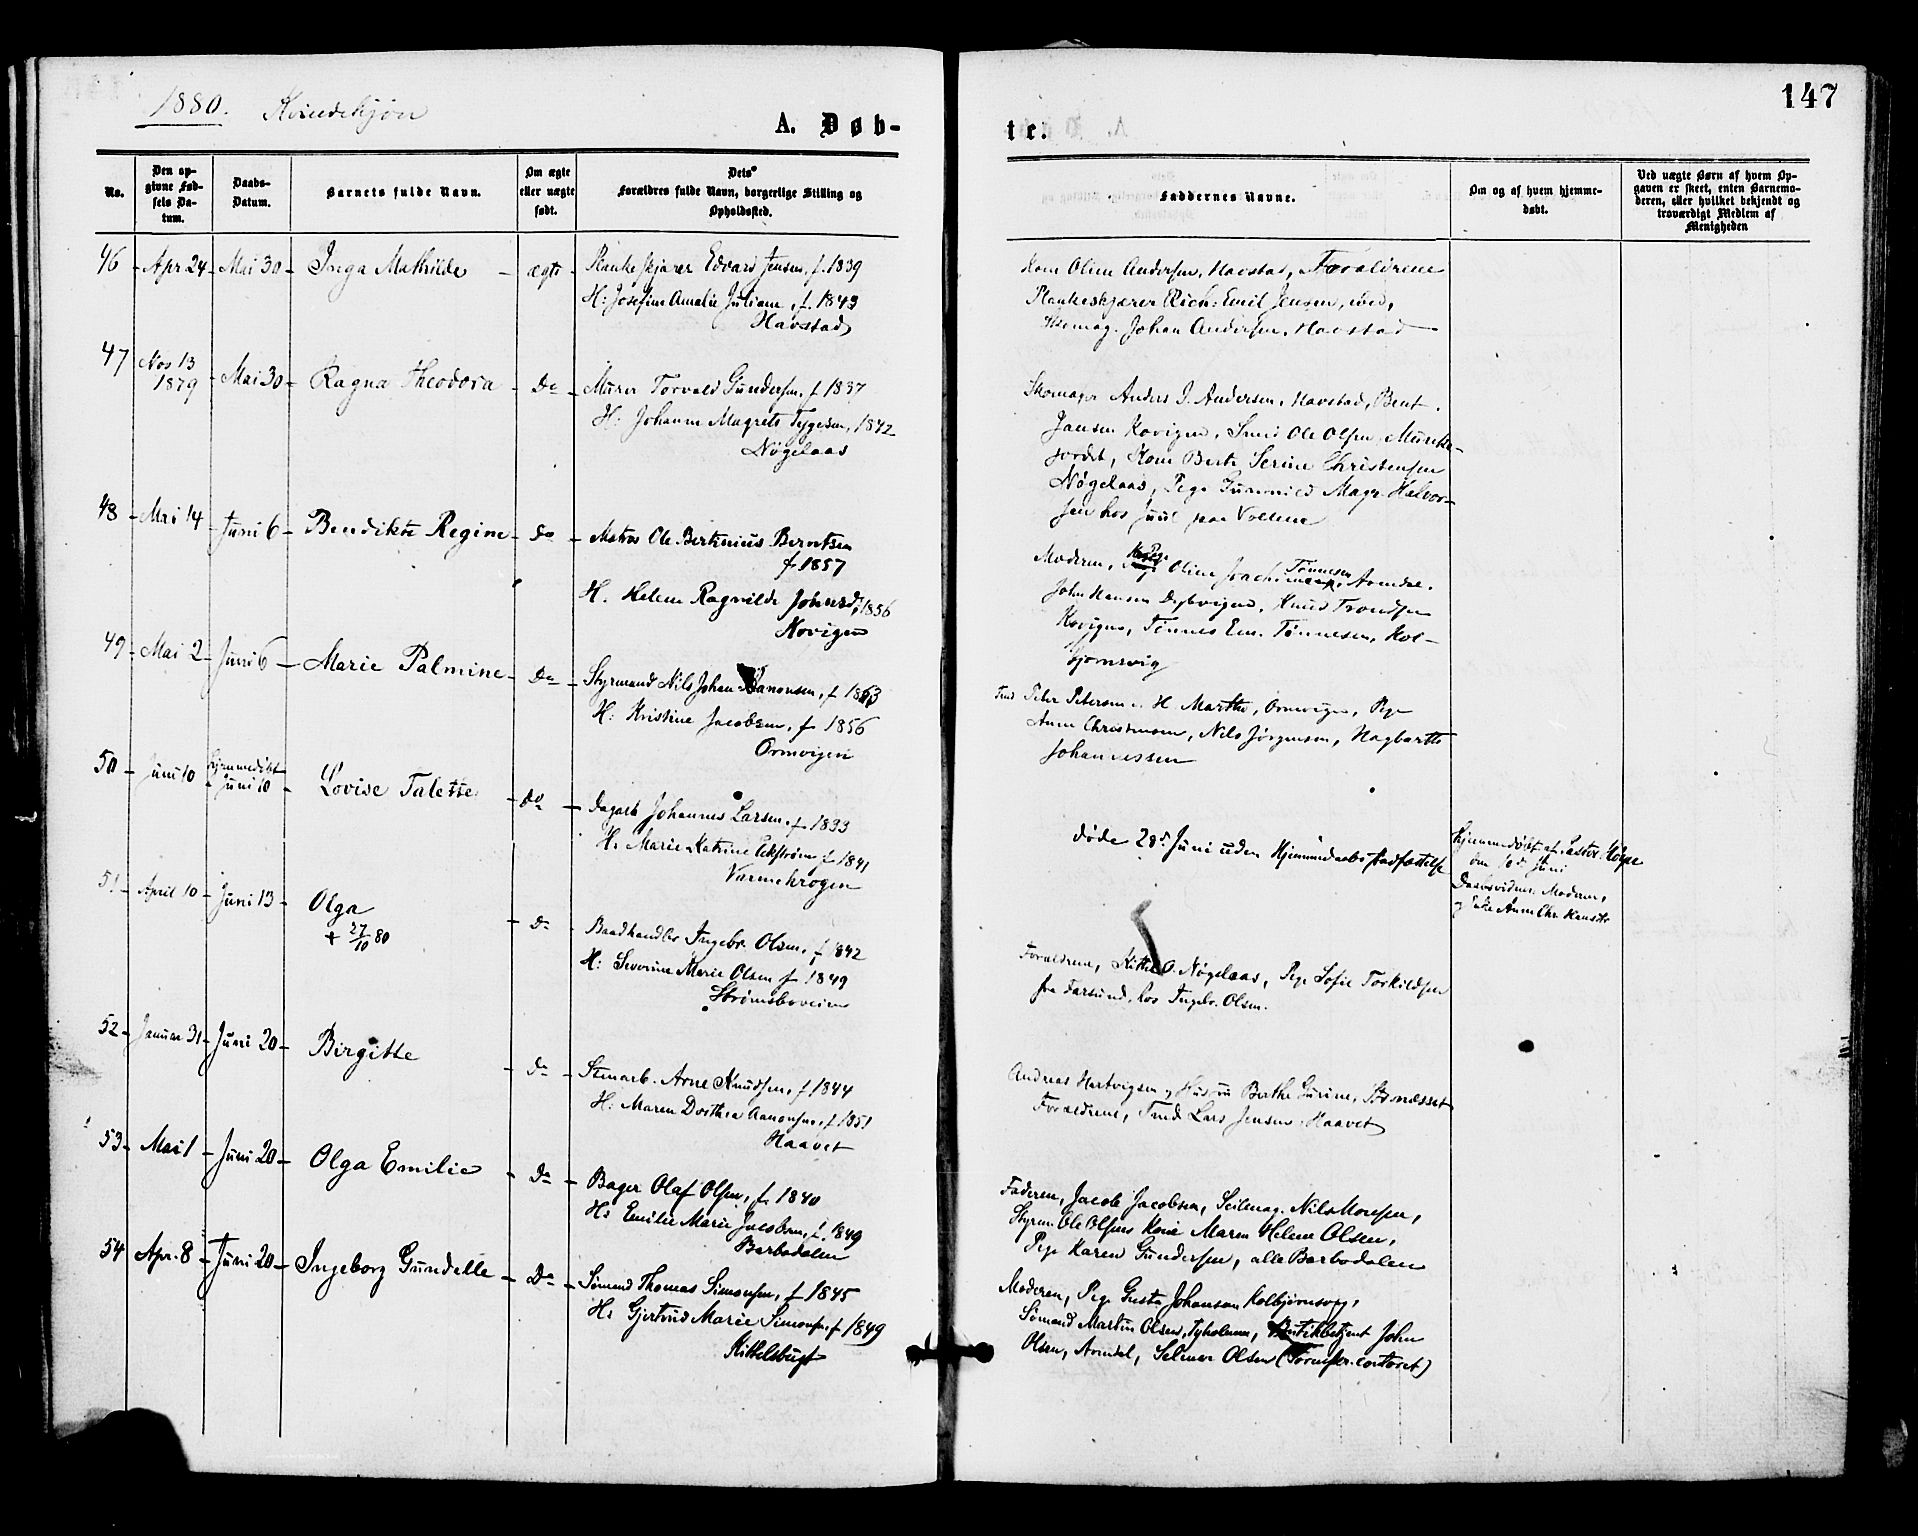 1880. Kvindekjøn
147
A. Døb-
te.
No.
Den op-
givne Fød-
sels Da-
tum.
Daabs-
Datum.
Barnets fulde Navn.
Om ægte
eller uægte
født.
Dets
Forældres fulde Navn, borgerlige Stilling og
Opholdssted.
Faddernes Navne.
Om og af hvem hjemme-
døbt.
Ved uægte Børn af hvem Op-
gaven er skeet, enten Barnemo-
deren, eller hvilket bekjendt og
troværdigt Medlem af
Menigheden
46 - Apr 24 - Mai 30 - Inga Mathilde - ægte - Plankeskjærer Edvard Jensen, f. 1839
H: Josefine Amalie Juliane, f. 1843
Havstad
Kone Oline Andersen, Havstad, Forældrene
Plankeskjærer Rich: Emil Jensen, ibid,
Johan Andersen, Havstad
47 - Nov 13
1879 - Mai 30 - Ragna Theodora - Do - Murer Torvald Gundersen, f 1837
H: Johanne Magrete Tygesen, 1842
Nøgelaas
Skomager Anders J. Andersen, Havstad, Bent
Jansen Kovigen, Smed Ole Olsen, Munke-
jordet, Kone Berte Serine Christensen
Nøgelaas, Pige Gunnild Magr. Halvor-
sen hos Juul paa Vollene
48 - Mai 14 - Juni 6 - Bendikte Regine - Do - Matros Ole Bertinius Berntsen
f 1857
H. Helene Ragnilde Johnsd, 1856
Kovigen
Moderen, Pige Oline Tønnesen, Arendal.
John Hansen Dybvigen, Knud Trondsen
Kovigen, Tønnes Em. Tønnesen, Kol-
bjørnsvig
49 - Mai 2 - Juni 6 - Marie Palmine - Do - Styrmand Nils Johan Aanonsen, f 1853
H: Kristine Jacobsen, f 1856
Ormvigen
Peter Petersen H. Marthe, Ormvigen, Pige
Anne Christensen, Nils Jørgensen, Hagbarth
Johannessen
50 - Juni 10 - Hjemmedøbt
Juni 10 - Lovise Talette - Do - Dagarb Johannes Larsen, f 1833
H. Marie Katrine Ekstrøm f 1841
Varmekrogen
døde 28de Juni uden Hjemmedaabs Stadfæstelse
Hjemmedøbt af Pastor
den 10de Juni
Daabsvidner: Moderen,
og Enke Anne Chr.
51 - April 10 - Juni 13 - Olga
+ 27/10 80
Do - Baadhandler Ingebr. Olsen, f 1842
H: Severine Marie Olsen f 1849
Strømsboveien
Forældrene, Kittel O. Nøgelaas, Pige Sofie Torkildsen
fra Farsund, hos Ingebr. Olsen.
52 - Januar 31 - Juni 20 - Birgitte - Do - Stenarb. Arne Knudsen, f 1844
H: Maren Dorthea Aanonsen, f 1851
Haavet
Andreas Hartvigsen og Hustru Berthe Gurine,
Forældrene, Lars Jensen Haavet
53 - Mai 1 - Juni 20 - Olga Emilie - Do - Bager Olaf Olsen, f. 1840
H: Emilie Marie Jacobsen, f. 1849
Barbodalen
Faderen, Jacob Jacobsen, Seilmag. Nils Monsen,
Styrm. Ole Olsens Kone Maren Helene Olsen,
Pige Karen Gundersen, alle Barbodalen
54 - Apr. 8 - Juni 20 - Ingeborg Gundelle - Do - Sømand Thomas Simonsen, f 1845
H: Gjertrud Marie Simonsen, f 1849
Kittelsbugt
Moderen, Pige Gusta Johansen Kolbjørnsvig,
Sømand Martin Olsen, Tyholmen, Butikbetjent John
Olsen, Arendal, Selmer Olsen